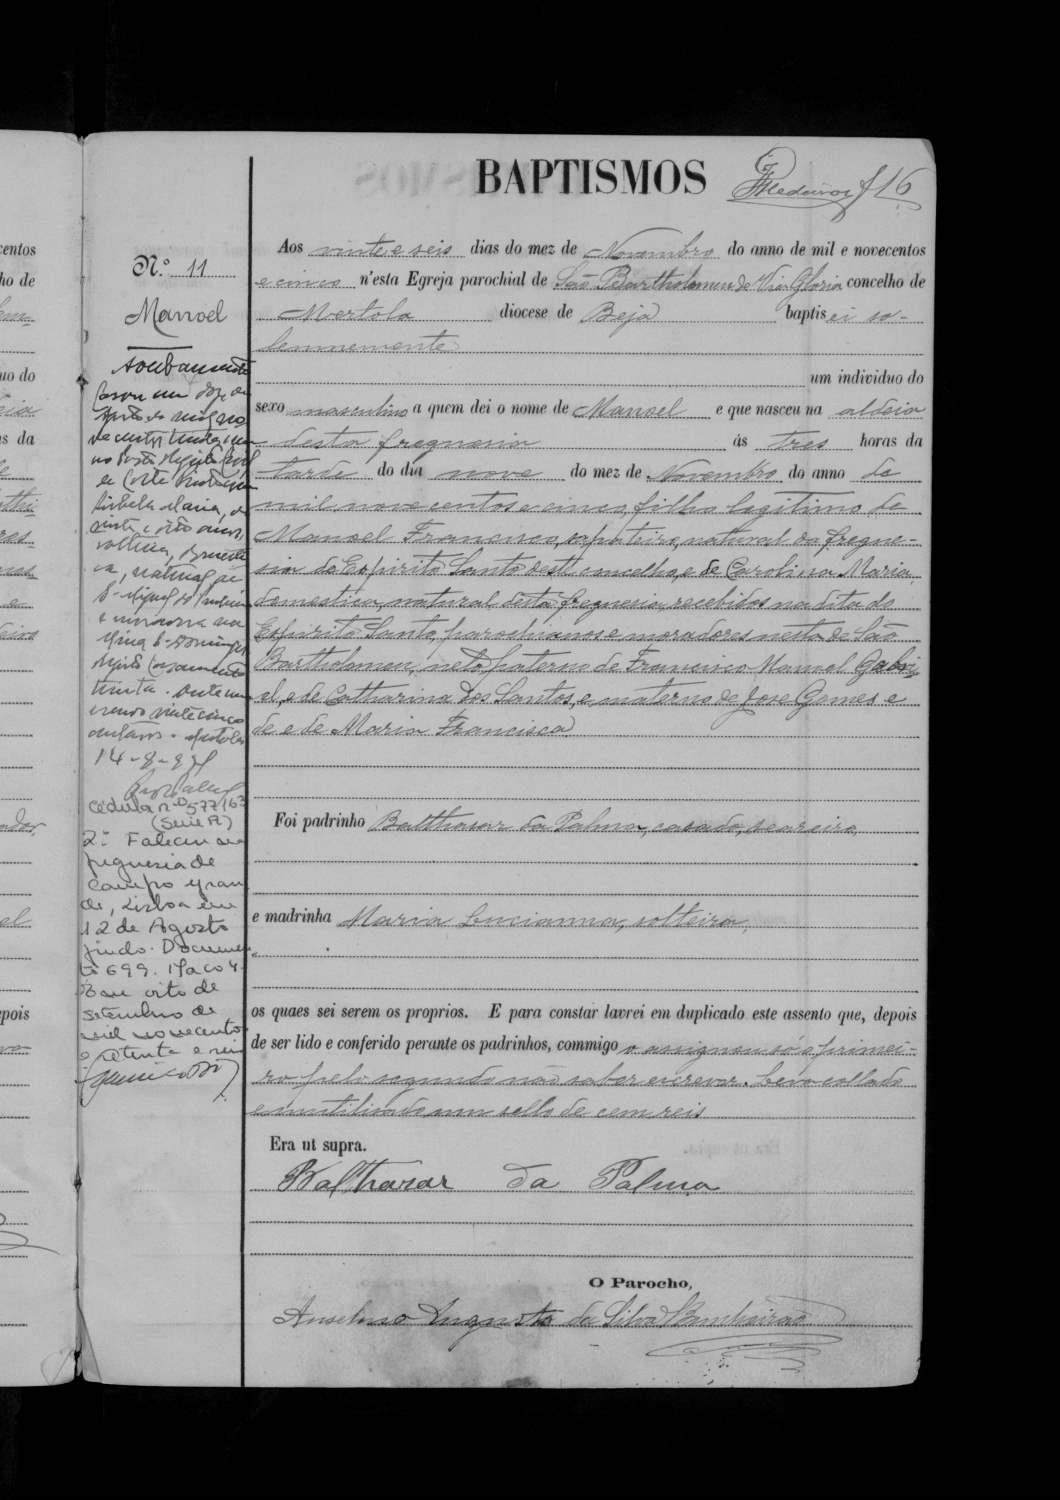 BAPTISMOS
Medeiros f 16
N.º 11
Manoel
Aos vinte e seis dias do mez de Novembro do anno de mil e novecentos
e cinco n'esta Egreja parochial de São Bartholomeu de Via Gloria concelho de
Mertola diocese de Beja baptisei so-
lemnemente
um individuo do
sexo masculino a quem dei o nome de Manoel e que nasceu na aldeia
desta freguesia ás tres horas da
tarde do dia nove do mez de Novembro do anno de
mil nove centos e cinco, filho legitimo de
Manoel Francisco, sapateiro, natural da fregue-
sia do Espirito Santo deste concelho, e de Carolina Maria,
domestica, natural desta freguesia, recebidos na dita do
Espirito Santo, parochianos e moradores nesta de São
Bartholomeu, neto paterno de Francisco Manoel Gabri-
el, e de Catharina dos Santos, e materno de José Gomes e
de e de Maria Francisca.
Foi padrinho Balthasar da Palma, casado, seareiro
e madrinha Maria Lucianna, solteira,
os quaes sei serem os proprios. E para constar lavrei em duplicado este assento que, depois
de ser lido e conferido perante os padrinhos, commigo o assignou só o primei-
ro pelo segundo não saber escrever. Leva collado
e inutilisado um sello de cem reis
Era ut supra.
Balthasar da Palma
O Parocho,
Anselmo Augusto da Silva
casou em
vinte e oito anos,
solteira, domesti
ca, natural de
e moradora na
vinte cinco
14-8-
Cédula nº 577163
(Serie A)
2º Faleceu na
freguesia de
Campo Gran
de, Lisboa em
12 de Agosto
findo. Documen
to 699. Maço 4.
oito de
Setembro de
mil novecentos
e setenta e seis